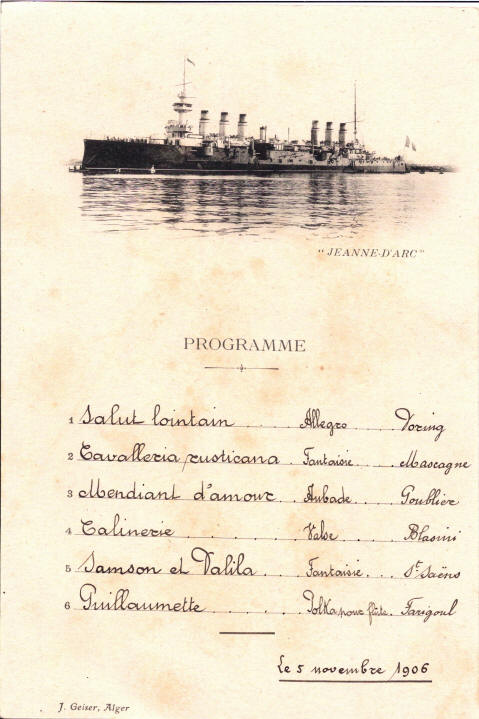 "JEANNE-D'ARC"
PROGRAMME
1 Salut lointain . . . . . Allegro . . . . Doring
2 Cavalleria rusticana . Fantaisie . . . Mascagne
3 Mendiant d'amour . . Aubade . . . . Goublier
4 Calinerie . . . . . . . . Valse . . . . . Blasini
5 Samson et Dalila . . . . Fantaisie . . St Saëns
6 Guillaumette . . . . . . Polka pour flûte . Farigoul
Le 5 novembre 1906
J. Geiser, Alger